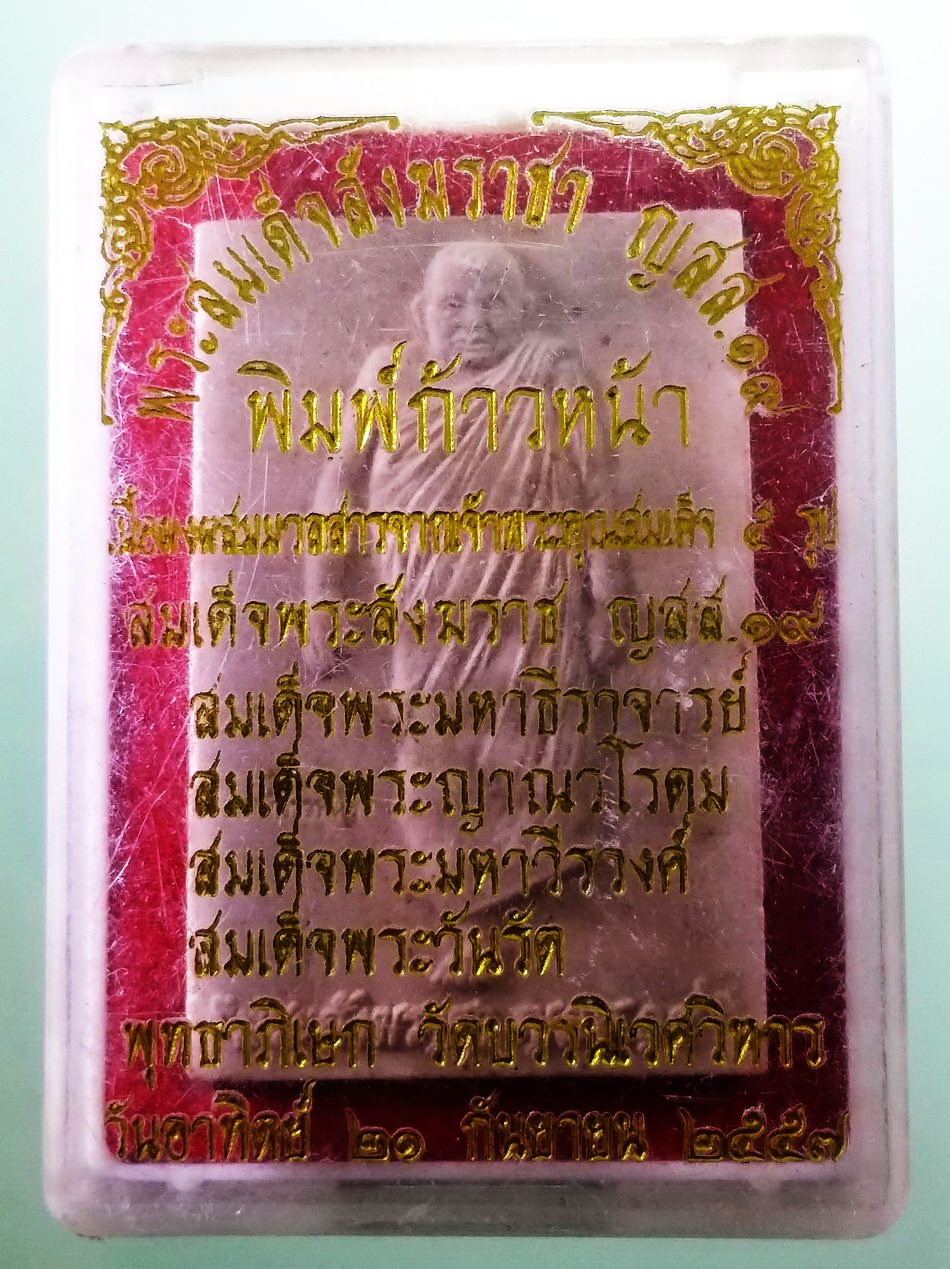 พระสมเด็จสังฆราชา ญสส.๑๙
พิมพ์ก้าวหน้า
เนื้อผงผสมมวลสารจากเจ้าพระคุณสมเด็จ ๕ รูป
สมเด็จพระสังฆราช ญสส.๑๙
สมเด็จพระมหาธีราจารย์
สมเด็จพระญาณวโรดม
สมเด็จพระมหาวีรวงศ์
สมเด็จพระวันรัต
พุทธาภิเษก วัดบวรนิเวศวิหาร
วันอาทิตย์ ๒๑ กันยายน ๒๕๕๗